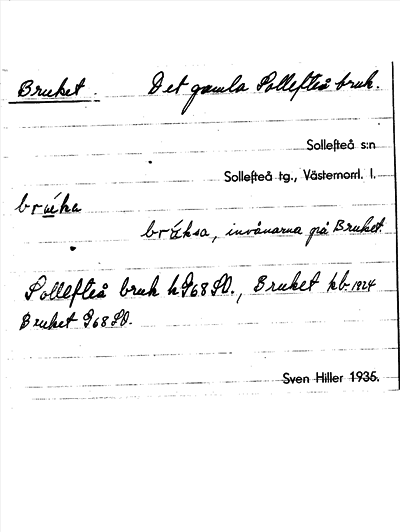 Bruket. Det gamla Sollefteå bruk.
Sollefteå s:n
Sollefteå tg., Västernorrl. l.
invånarna på Bruket.
Sollefteå bruk h G68SO., Bruket kb 1824
Bruket G68SO.
Sven Hiller 1935.